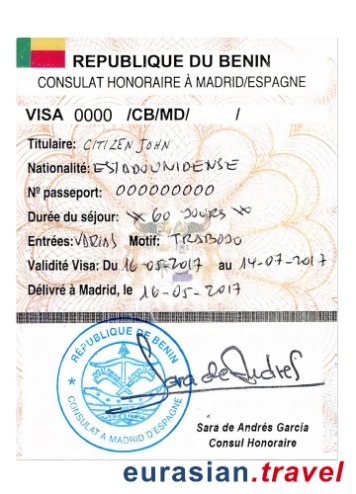 REPUBLIQUE DU BENIN
CONSULAT HONORAIRE À MADRID/ESPAGNE
VISA 0000 /CB/MD/ /
Titulaire: CITIZEN JOHN
Nationalité: ESTADOUNIDENSE
Nº passeport: 000000000
Durée du séjour: 60 JOURS
Entrées: VARIAS Motif: TRABAJO
Validité Visa: Du 16-05-2017 au 14-07-2017
Délivré à Madrid, le 16-05-2017
RÉPUBLIQUE DE BENIN
CONSULAT A MADRID D'ESPAGNE
Sara de Andrés
Sara de Andrés García
Consul Honoraire
eurasian.travel